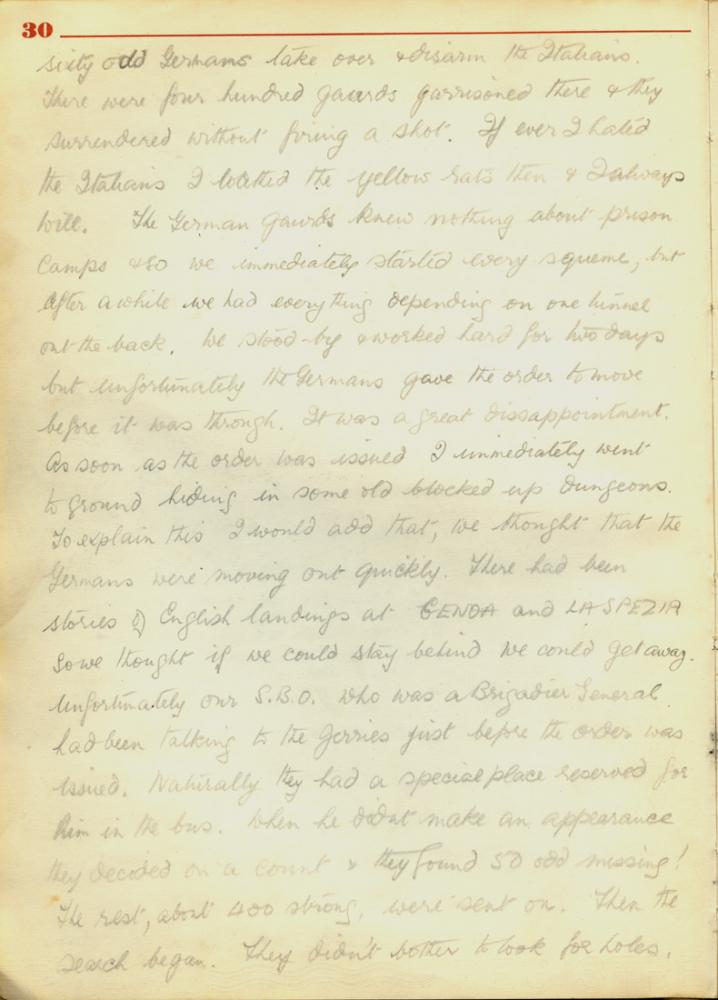 30
sixty odd Germans take over & disarm the Italians.
There were four hundred gaurds garrisoned there & they
surrendered without firing a shot. If ever I hated
the Italians I loathed the yellow rats then & I always
will. The German gaurds knew nothing about prison
camps & so we immediately started every squeme, but
after awhile we had everything depending on one tunnel
out the back. We stood by & worked hard for two days
but unfortunately the Germans gave the order to move
before it was through. It was a great dissappointment.
As soon as the order was issued I immediately went
to ground hiding in some old blocked up dungeons.
To explain this I would add that, we thought that the
Germans were moving out quickly. There had been
stories of English landings at GENOA and LA SPEZIA
so we thought if we could stay behind we could get away.
Unfortunately our S.B.O. who was a Brigadier General
had been talking to the Jerries just before the order was
issued. Naturally they had a special place reserved for
him in the bus. When he didnt make an appearance
they decided on a count & they found 50 odd missing!
The rest, about 400 strong, were sent on. Then the
search began. They didn't bother to look for holes,